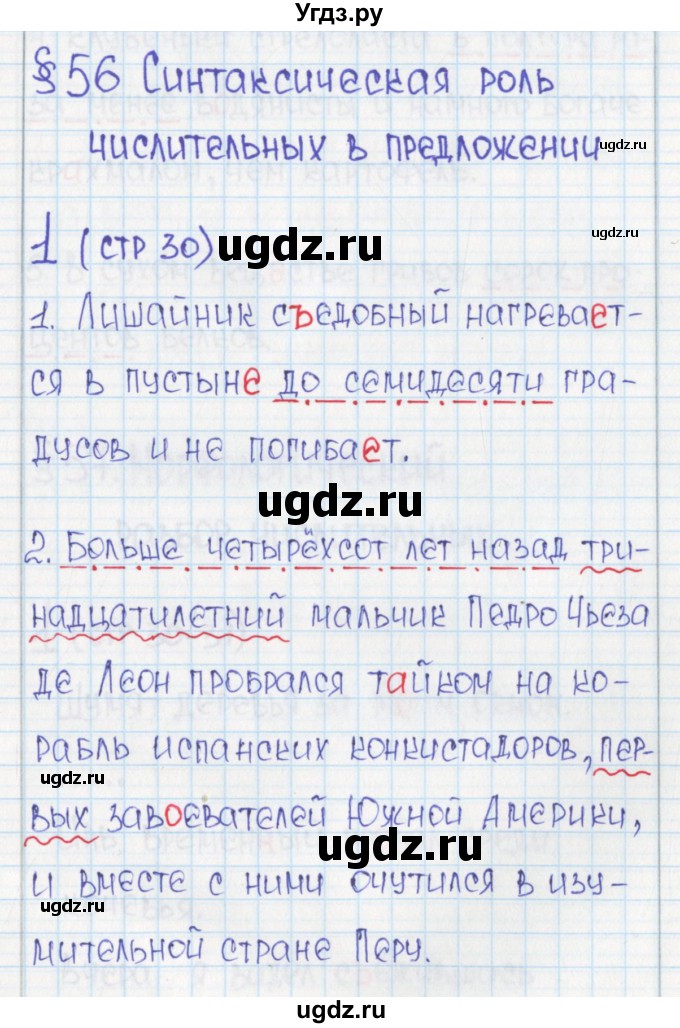 Угдз.ру
§ 56 Синтаксическая роль
числительных в предложении
ugdz.ru
ugdz.ru
1 (стр 30)
ugdz.ru
1. Лишайник съедобный нагревает-
ся в пустыне до семидесяти гра-
ugdz.ru
дусов и не погибает.
ugdz.ru
2. Больше четырёхсот лет назад три-
надцатилетний мальчик Педро Чьеза
де Леон пробрался тайком на ко-
рабль испанских конкистадоров, пер-
ugdz.ru
вых завоевателей Южной Америки,
ugdz.ru
ugdz.ru
и вместе с ними очутился в изу-
мительной стране Перу.
ugdz.ru
ugdz.ru